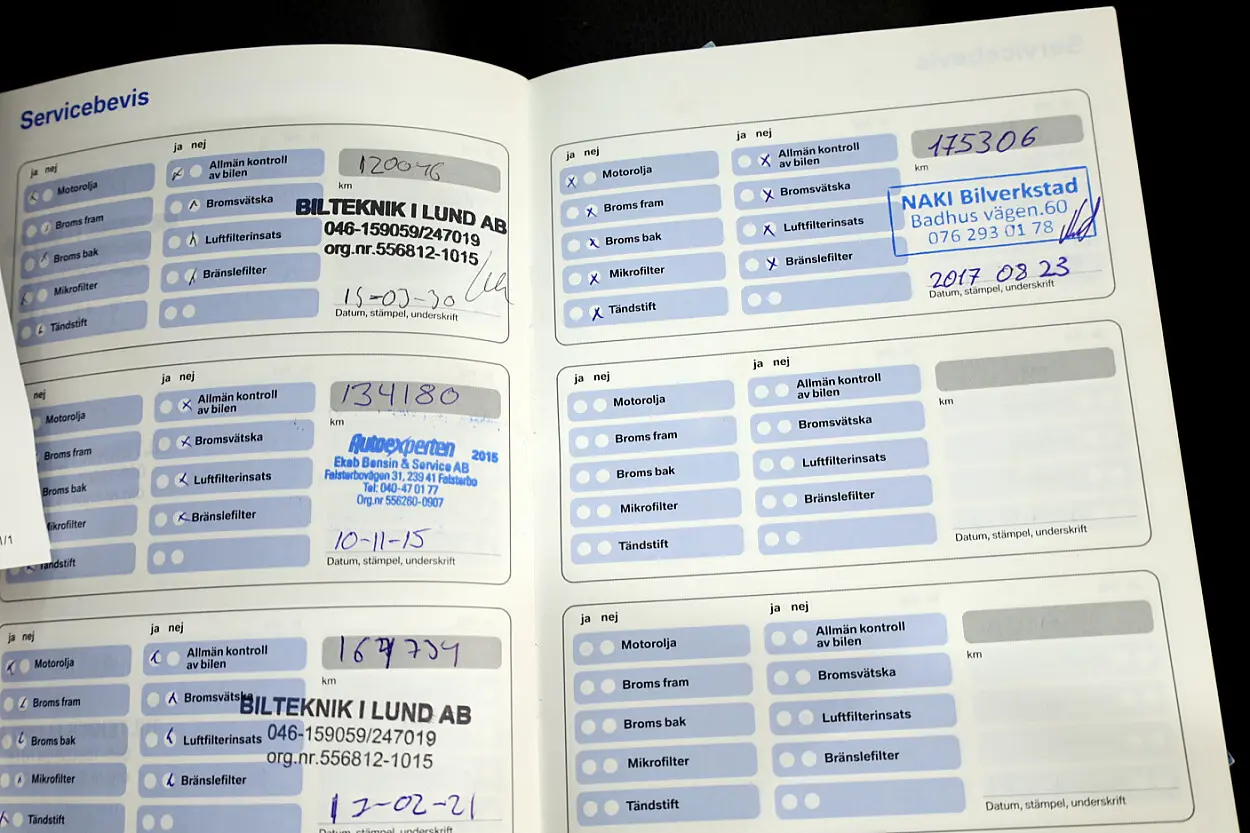 Servicebevis
ja nej
Motorolja
Broms fram
Broms bak
Mikrofilter
Tändstift
ja nej
Allmän kontroll
av bilen
Bromsvätska
Luftfilterinsats
Bränslefilter
120046
km
BILTEKNIK I LUND AB
046-159059/247019
org.nr.556812-1015
15-03-30
Datum, stämpel, underskrift
nej
Motorolja
Broms fram
Broms bak
Mikrofilter
Tändstift
1/1
ja nej
Allmän kontroll
av bilen
Bromsvätska
Luftfilterinsats
Bränslefilter
134180
km
Autoexperten 2015
Ekab Bensin & Service AB
Falsterbovägen 31, 239 41 Falsterbo
Tel: 040-47 01 77
Org.nr 556260-0907
10-11-15
Datum, stämpel, underskrift
ja nej
Motorolja
Broms fram
Broms bak
Mikrofilter
Tändstift
ja nej
Allmän kontroll
av bilen
Bromsvätska
Luftfilterinsats
Bränslefilter
km
BILTEKNIK I LUND AB
046-159059/247019
org.nr.556812-1015
17-02-21
Datum, stämpel, underskrift
ja nej
Motorolja
Broms fram
Broms bak
Mikrofilter
Tändstift
ja nej
Allmän kontroll
av bilen
Bromsvätska
Luftfilterinsats
Bränslefilter
175306
km
NAKI Bilverkstad
Badhus vägen.60
076 293 01 78
2017 08 23
Datum, stämpel, underskrift
ja nej
Motorolja
Broms fram
Broms bak
Mikrofilter
Tändstift
ja nej
Allmän kontroll
av bilen
Bromsvätska
Luftfilterinsats
Bränslefilter
km
Datum, stämpel, underskrift
ja nej
Motorolja
Broms fram
Broms bak
Mikrofilter
Tändstift
ja nej
Allmän kontroll
av bilen
Bromsvätska
Luftfilterinsats
Bränslefilter
km
Datum, stämpel, underskrift